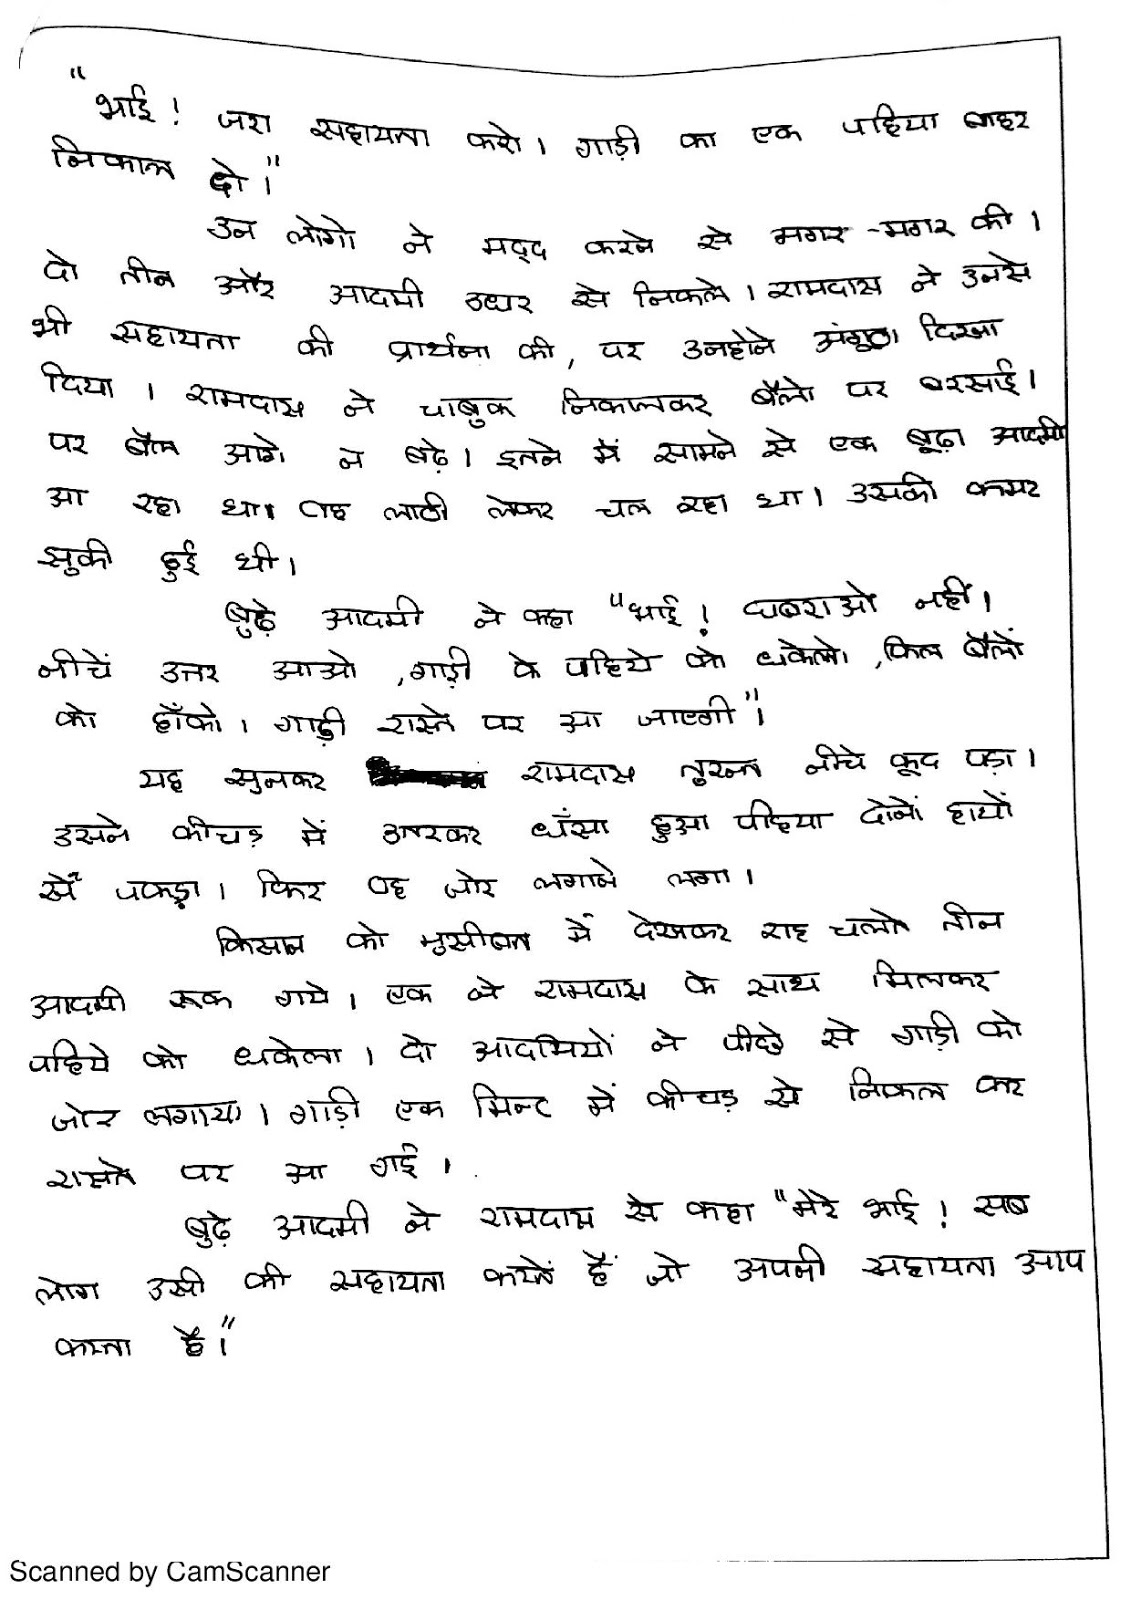 "भाई! जरा सहायता करो। गाड़ी का एक पहिया बाहर
निकाल दो।"
उन लोगो ने मद्द करने से मगर-मगर की।
दो तीन और आदमी उधर से निकले। रामदास ने उनसे
भी सहायता की प्रार्थना की, पर उनहोने अंगूठा दिखा
दिया। रामदास ने चाबुक निकालकर बैलो पर बरसाई।
पर बैल आगे न बढ़े। इतने में सामने से एक बूढ़ा आदमी
आ रहा था। वह लाठी लेकर चल रहा था। उसकी कमर
झुकी हुई थी।
बुढ़े आदमी ने कहा "भाई! घबराओ नहीं।
नीचें उत्तर आओ, गाड़ी के पहिये को धकेलो, फिल बैलों
को हाँको। गाढ़ी रास्ते पर आ जाएगी"।
यह सुनकर रामदास तुरन्त नीचे कूद पड़ा।
उसने कीचड़ में उतरकर धँसा हुआ पहिया दोनों हाथों
सें पकड़ा। फिर वह जोर लगाने लगा।
किसान को मुसीबत में देखकर राह चलते तीन
आदमी रूक गये। एक ने रामदास के साथ मिलकर
पहिये को धकेला। दो आदमियों ने पीछे से गाड़ी को
जोर लगाया। गाड़ी एक मिन्ट में कीचड़ से निकल कर
रास्ते पर आ गई।
बुढ़े आदमी ने रामदास से कहा "मेरे भाई! सब
लोग उसी की सहायता करतें हैं जो अपनी सहायता आप
करता है।"
Scanned by CamScanner